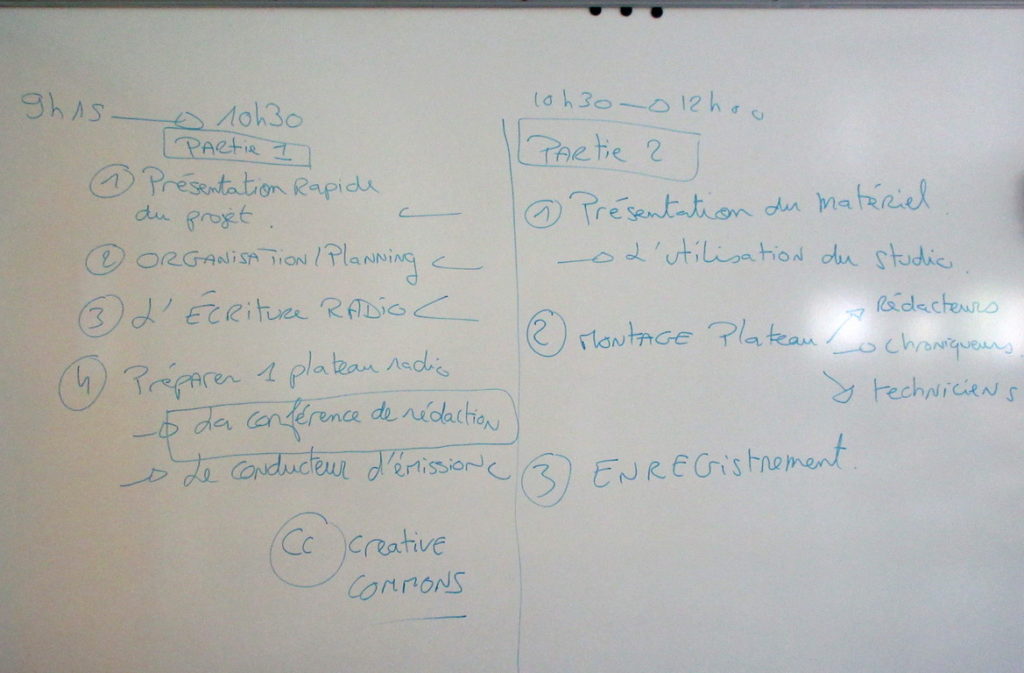 9h15 → 10h30
PARTIE 1
① Présentation Rapide
du projet.
② ORGANISATION / Planning
③ L'ÉCRITURE RADIO
④ Préparer 1 plateau radio
→ La conférence de rédaction
→ Le conducteur d'émission
Cc creative
COMMONS
10h30 → 12h00
PARtie 2
① Présentation du matériel
→ L'utilisation du studio.
② MONTAGE Plateau → Rédacteurs
→ chroniqueurs
→ techniciens
③ ENREGistrement.